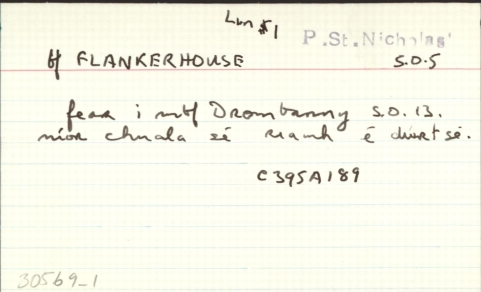 Lm $1
P. St. Nicholas'
bf FLANKERHOUSE S.O.5
fear i mbf Drombanny S.O. 13.
níor chuala sé riamh é dúirt sé.
C395A189
30569_1